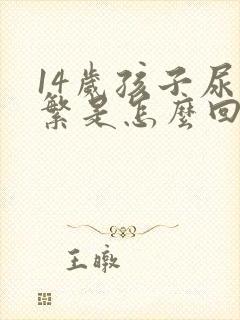 14歲孩子尿
繁是怎麼回
王暾